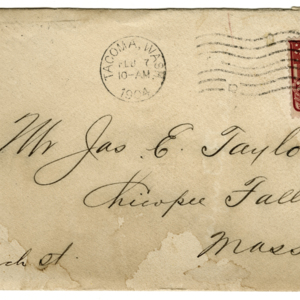 TACOMA, WASH
FEB 7
10-AM
1904
Mr Jas. E. Taylo
Chicopee Fall
Mass
ch St.